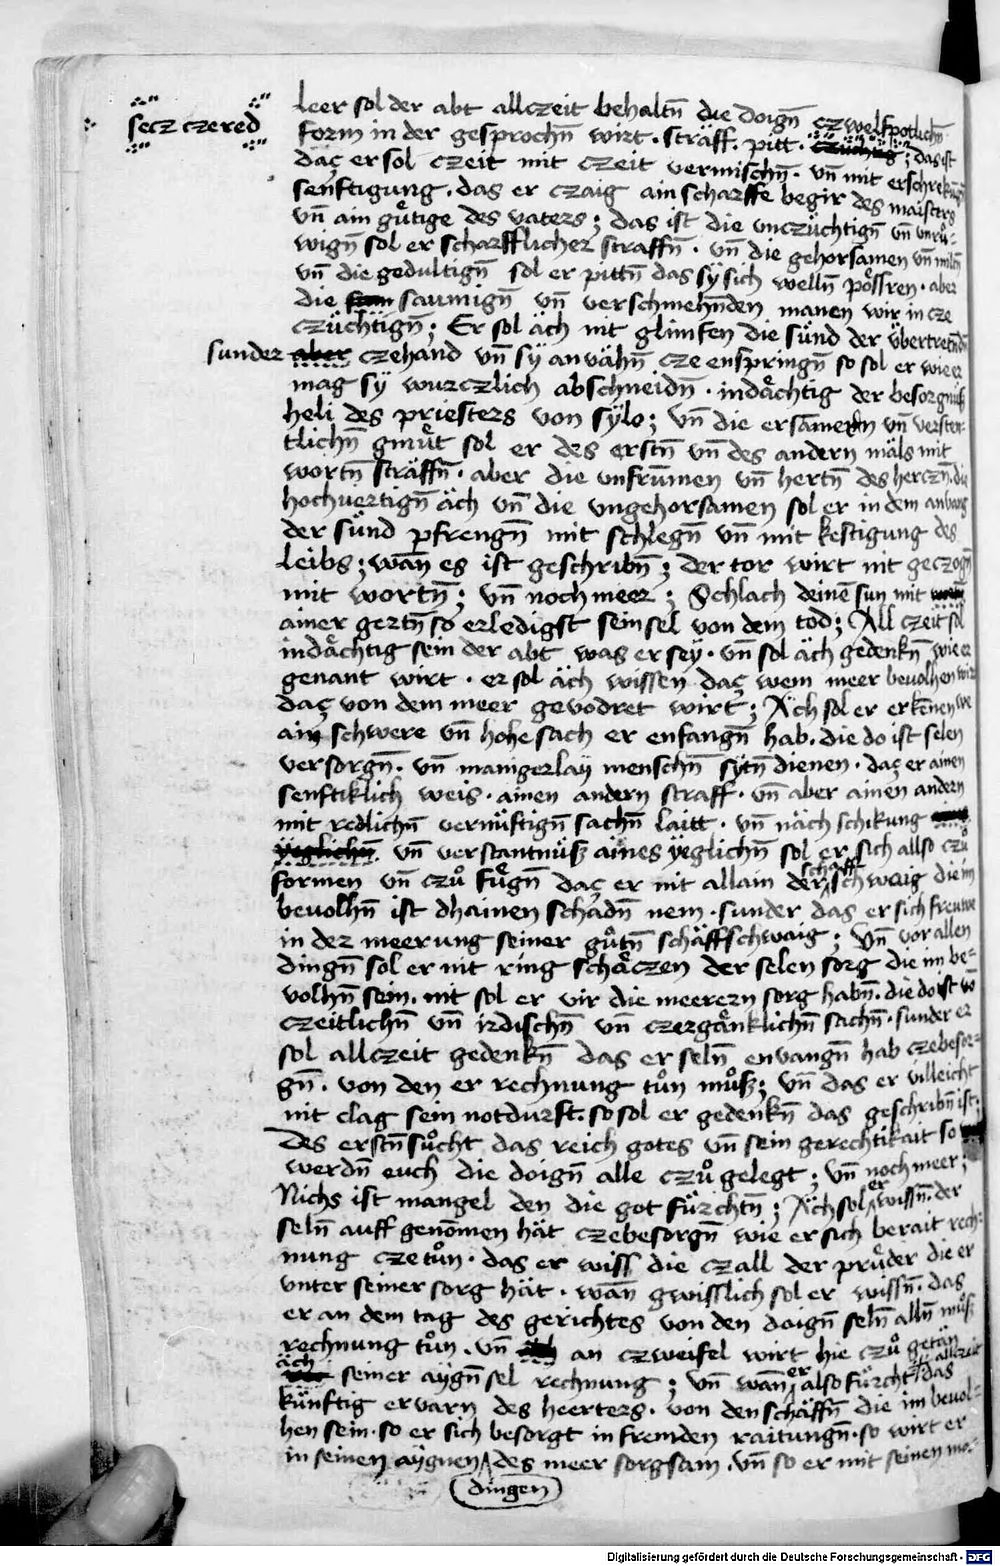 secz czered
leer sol der abt allczeit behaltn̄ die doign̄ czwelfpotlichn̄
form in der gesprochn̄ wirt . sträff . pitt . ; das ist
daz er sol czeit mit czeit vermischn̄ . vn̄ mit erschrekung
senftigung . das er czaig ain scharffe begir des maisters
vn̄ ain gůtige des vaters ; das ist die vnczüchtign̄ vn̄ vnrů-
wign̄ sol er scharfflicher straffn̄ . vn̄ die gehorsamen vn̄ miltn̄
vn̄ die gedultign̄ sol er pittn̄ das sy sich welln̄ pössren . aber
die saumign̄ vn̄ verschmehnden manen wir in cze
czüchtign̄ ; Er sol äch nit glimfen die sünd der übertretndn̄
sunder aber czehand vn̄ sy anvähn̄ cze enspringn̄ so sol er wie er
mag sy wurczlich abschneidn̄ . indächtig der besorgnüß
heli des priesters von sylo ; vn̄ die ersamern vn̄ versten-
tlichn̄ gmüt sol er des erstn̄ vn̄ des andern mäls mit
wortn̄ sträffn̄ . aber die vnfrumen vn̄ hertn̄ des herczn̄ . die
hochvertign̄ äch vn̄ die vngehorsamen sol er in dem anvang
der sünd pfrengn̄ mit schlegn̄ vn̄ mit kestigung des
leibs ; wan̄ es ist geschribn̄ ; der tor wirt nit geczogn̄
mit wortn̄ ; vn̄ noch meer ; Schlach deinē sun mit
ainer gertn̄ so erledigst sein sel von dem tod ; All czeit sol
indächtig sein der abt was er sey . vn̄ sol äch gedenkn̄ wie er
genant wirt . er sol äch wissen daz wem meer bevolhen wirt
daz von dem meer gevodret wirt ; Äch sol er erkēnen we
ain schwere vn̄ hohe sach er enfangn̄ hab . die do ist selen
versorgn̄ . vn̄ manigerlay menschn̄ sytn̄ dienen . daz er ainen
senftiklich weis . ainen andern straff . vn̄ aber ainen andern
mit redlichn̄ vernüftign̄ sachn̄ laitt . vn̄ näch schikung
yeglichn̄ vn̄ verstantnüß aines yeglichn̄ sol er sich allso czů
formen vn̄ czů fügn̄ daz er nit allain der schäff schwaig die im
bevolhn̄ ist dhainen schadn̄ nem . sunder das er sich freuwe
in der meerung seiner gůtn̄ schäffschwaig ; vn̄ vor allen
dingn̄ sol er nit ring schäczen der selen sorg die im be-
volhn̄ sein . nit sol er vir die meerern sorg habn̄ . die do ist vō
czeitlichn̄ vn̄ irdischn̄ vn̄ czergänklichn̄ sachn̄ . sunder er
sol allczeit gedenkn̄ das er seln̄ envangn̄ hab czebesor-
gn̄ . von den er rechnung tůn můß ; vn̄ das er villeicht
nit clag sein notdurft . so sol er gedenkn̄ das geschribn̄ ist ;
Des erstn̄ sůcht das reich gotes vn̄ sein gerechtikait so
werdn̄ euch die doign̄ alle czů gelegt ; vn̄ noch meer ;
Nichs ist mangel den die got fürchtn̄ ; Äch sol er wissn̄ . der
seln̄ auff genomen hät czebesorgn̄ wie er sich berait rech-
nung cze tůn . das er wiss die czall der průder die er
unter seiner sorg hät . wān gwisslich sol er wissn̄ . das
er an dem tag des gerichtes von den doign̄ seln̄ alln̄ můß
rechnung tůn . vn̄ an czweifel wirt hie czů getän
äch seiner aygn̄ sel rechnung ; vn̄ wān er also fürcht allczeit das
künftig ervarn des heerters . von den schäffn̄ die im bevol-
hen sein . so er sich besorgt in fremden raitungn̄ . so wirt er
in seinen aygnen des meer sorgsam . vn̄ so er mit seinen mo-
dingen
Digitalisierung gefördert durch die Deutsche Forschungsgemeinschaft - DFG